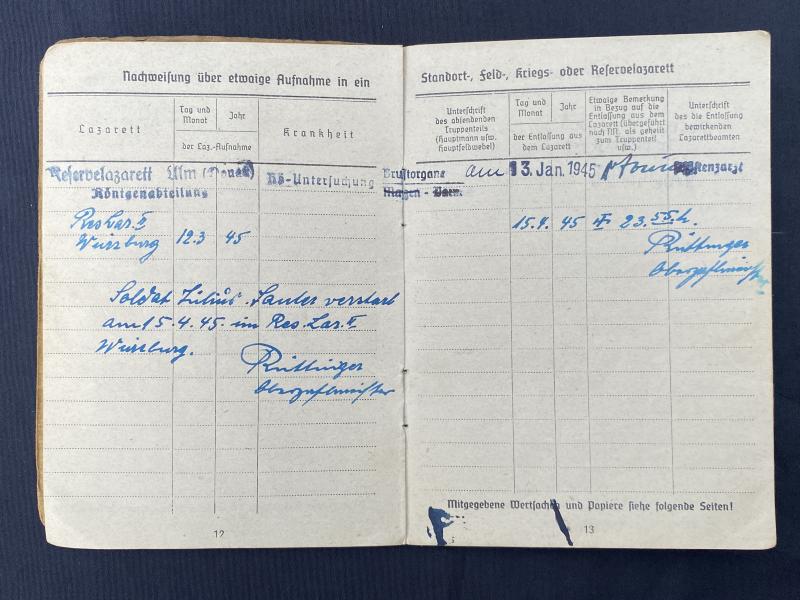 Nachweisung über etwaige Aufnahme in ein
Lazarett
Tag und
Monat
Jahr
der Laz.-Aufnahme
Krankheit
Reservelazarett Ulm (Donau)
Röntgenabteilung
Rö-Untersuchung
Res. Laz. II
Würzburg 12.3 45
Soldat Julius Sauter verstarb
am 15.4.45. im Res. Laz. II
Würzburg.
Rüttinger
Oberzahlmeister
12
Standort-, Feld-, Kriegs- oder Reservelazarett
Unterschrift
des absendenden
Truppenteils
(Hauptmann usw.
Hauptfeldwebel)
Tag und
Monat
Jahr
der Entlassung aus
dem Lazarett
Etwaige Bemerkung
in Bezug auf die
Entlassung aus dem
Lazarett (übergeführt
nach NN, als geheilt
zum Truppenteil
usw.)
Unterschrift
des die Entlassung
bewirkenden
Lazarettbeamten
Brustorgane am 13. Jan. 1945
Magen - Darm
15.4. 45 23.55 h.
Rüttinger
Oberzahlmeister
Mitgegebene Wertsachen und Papiere siehe folgende Seiten!
13